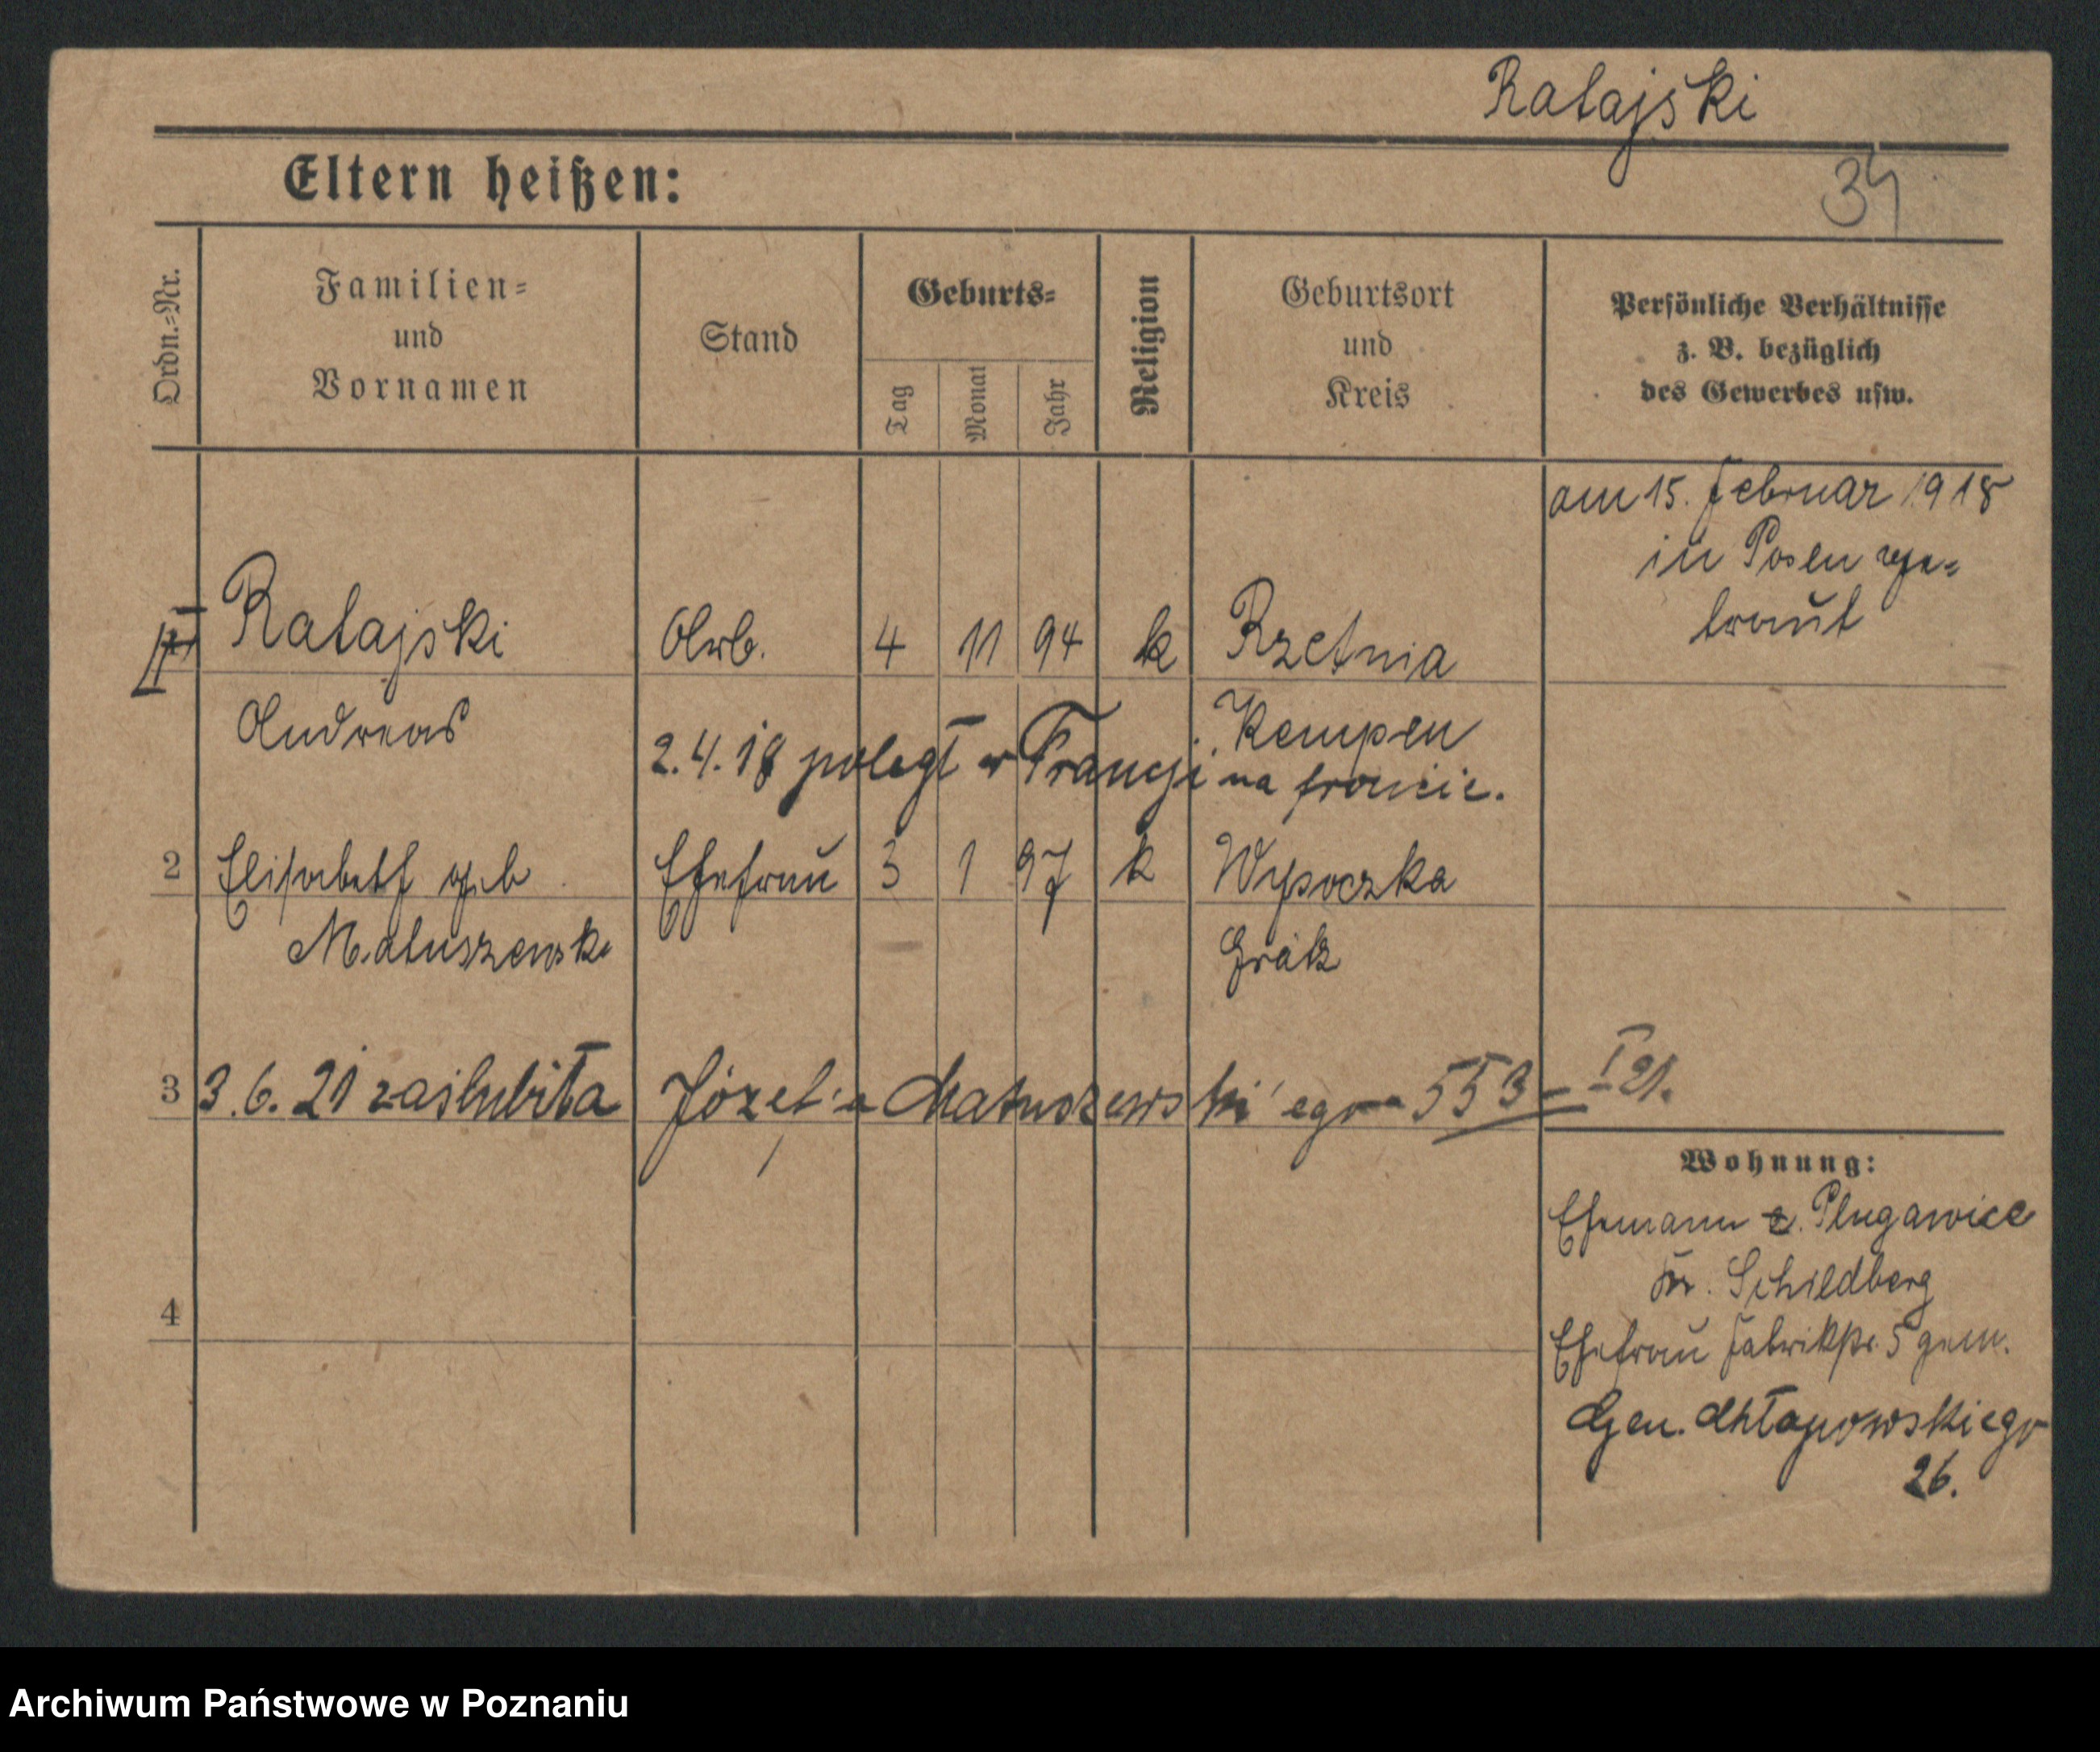 Ratajski
34
Eltern heißen:
Ordn.=Nr.
Familien=
und
Vornamen
Stand
Geburts=
Tag
Monat
Jahr
Religion
Geburtsort
und
Kreis
Persönliche Verhältnisse
z. B. bezüglich
des Gewerbes usw.
am 15. Februar 1918
in Posen ge=
traut
Ratajski Arb. 4 11 94 k Rzetnia
Andreas
Kempen
2.4.18 poległ w Francji na froncie.
2 Elisabeth geb Ehefrau 3 1 97 k Wysoczka
Matuszewski
Grätz
3 3.6.21 zaślubiła Józefa Matuszewski'ego 553 I 21.
Wohnung:
Ehemann Plugawice
Kr. Schildberg
4
Ehefrau Fabrikstr. 5 gem.
Gen. Chłapowskiego
26.
Archiwum Państwowe w Poznaniu